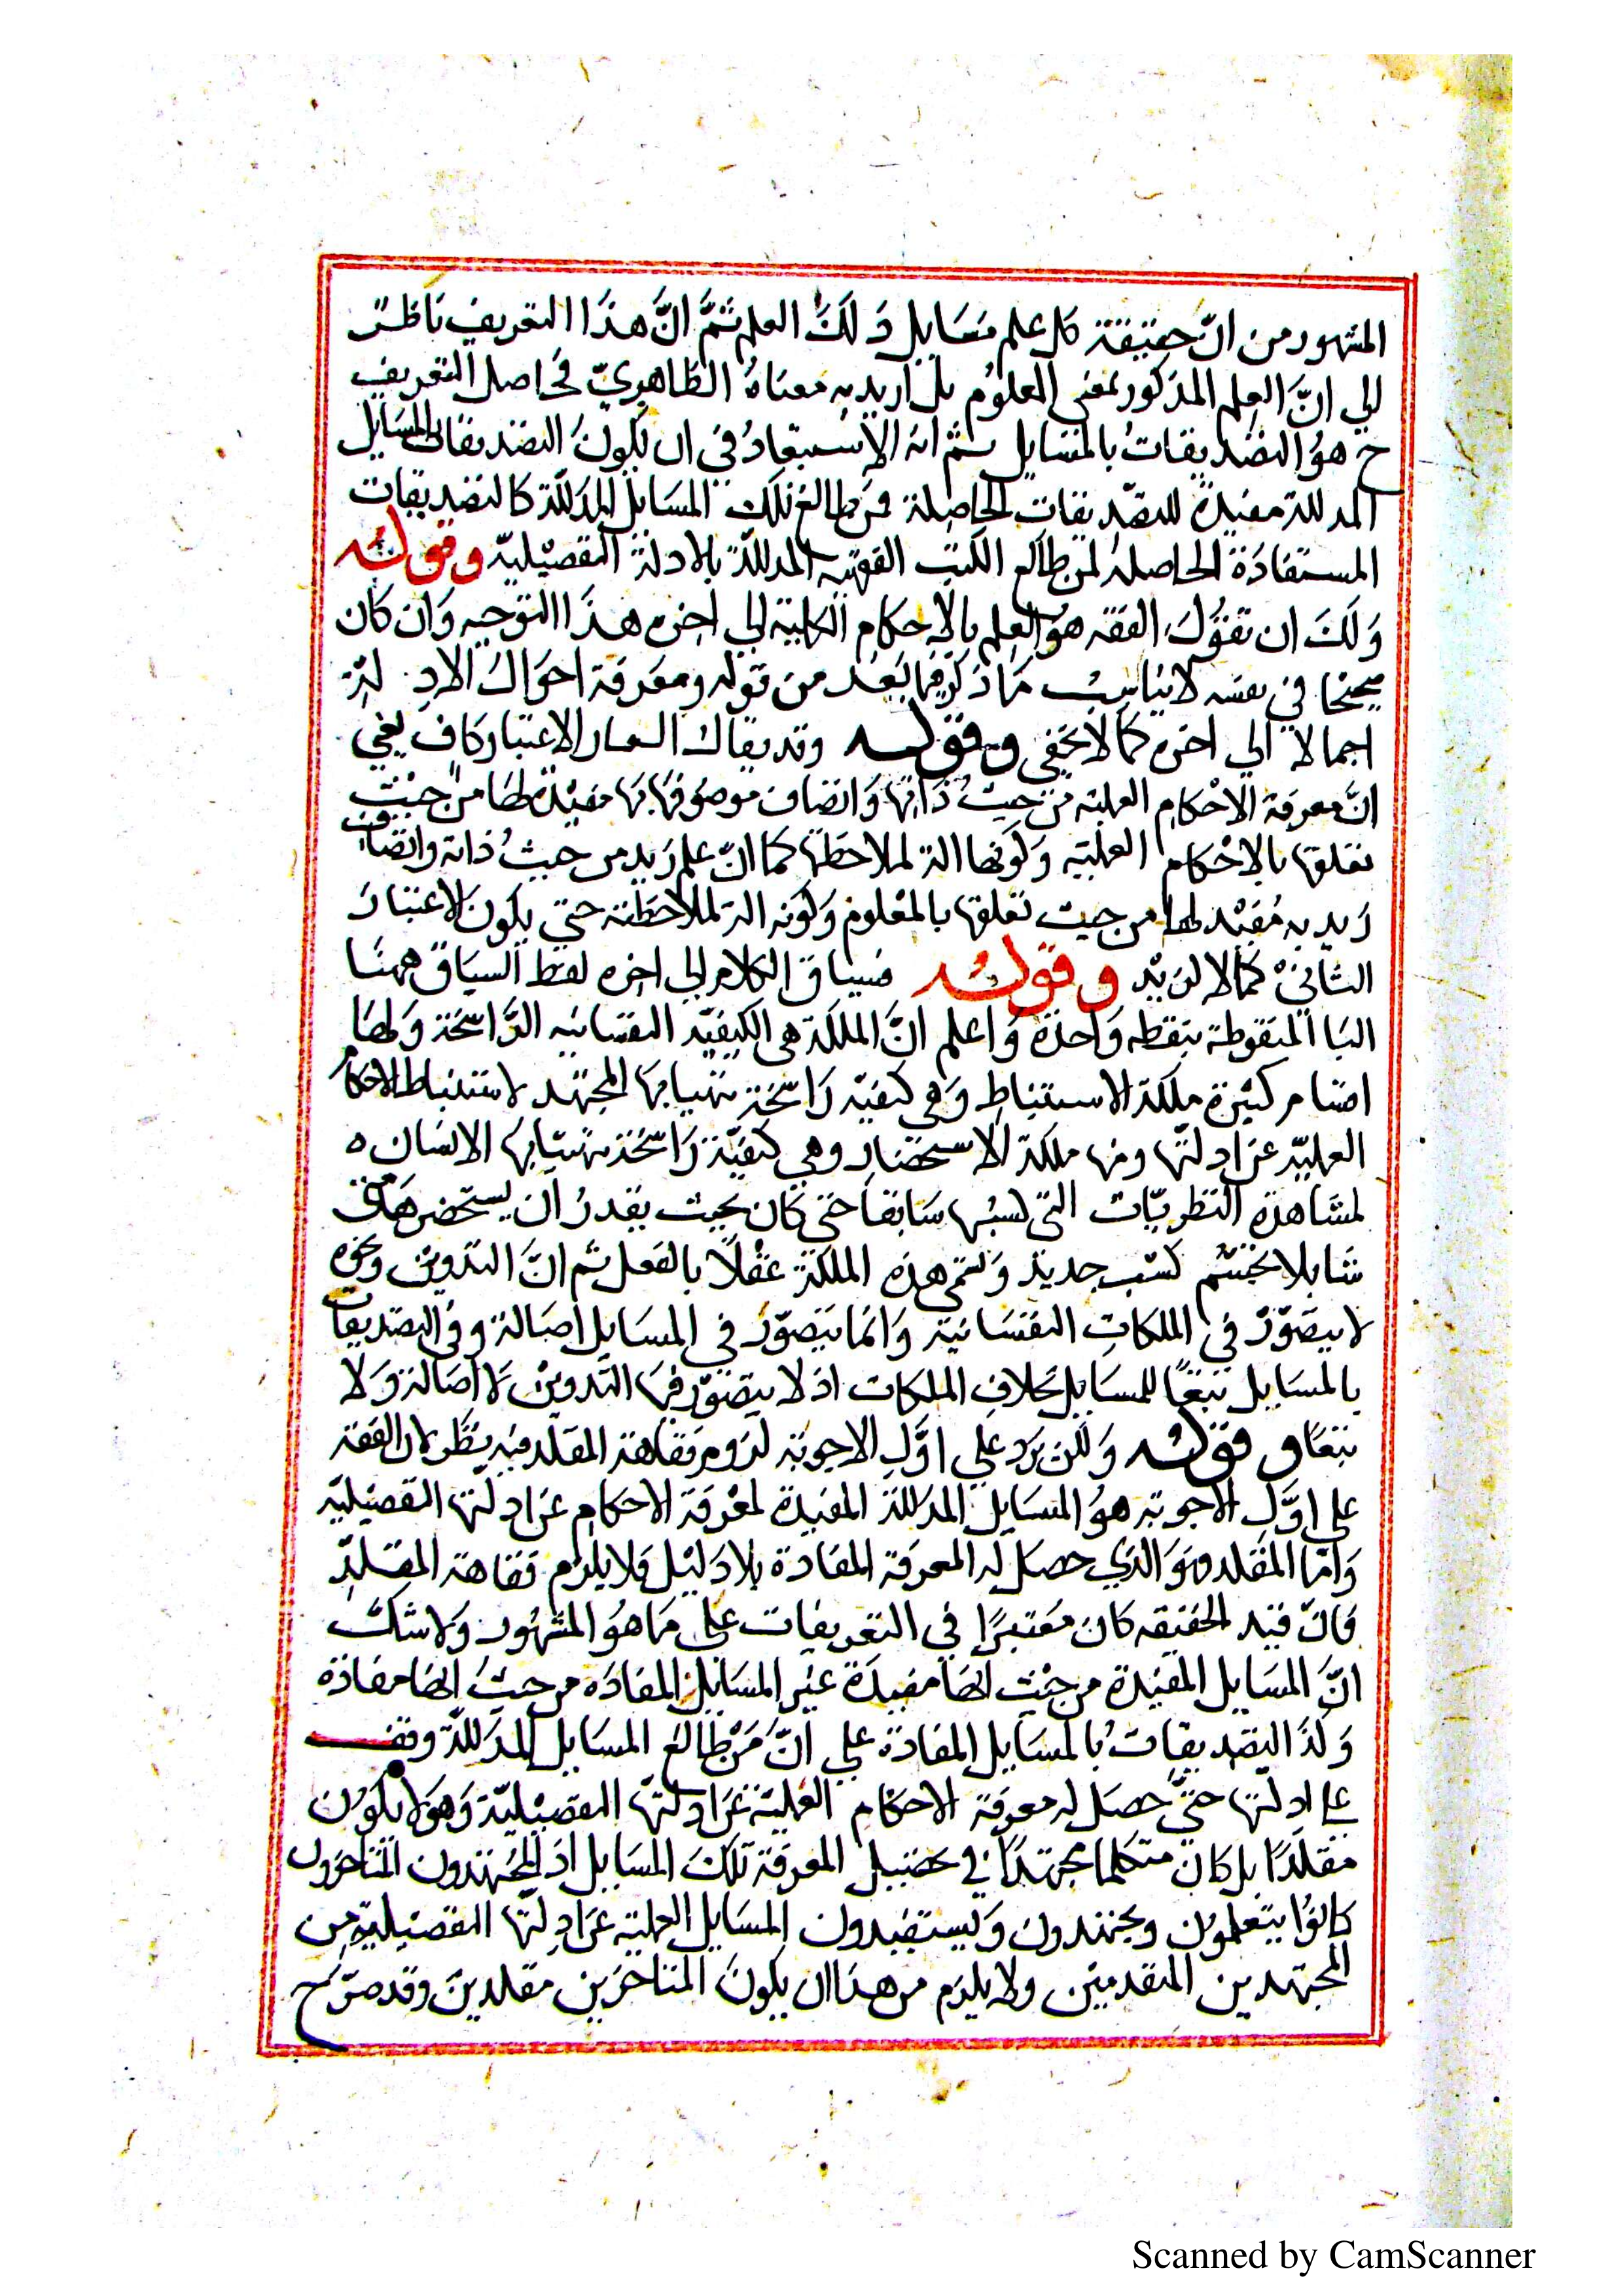 المشهور من انّ حقيقة كل علم مسايل ذلك العلم ثمّ انّ هذا التعريف ناظر
الي انّ العلم المذكور بمعني المعلوم بل اريد به معناه الظاهريّ في اصل التعريف
ح هو التصديقات بالمسايل ثم انه لا استبعاد في ان يكون التصديقات بالمسايل
المدللة مفيدة للتصديقات الحاصلة لمن طالع تلك المسايل المدللة كالتصديقات
المستفادة الحاصلة لمن طالع الكتب الفقهيه المدللة بالادلة التفصيليّة وقوله
ولك ان تقول الفقه هو العلم بالاحكام الكلية الي اخره هذا التوجيه وان كان
صحيحا في نفسه لا يناسب ما ذكر فيما بعد من قوله ومعرفة احوال الادلة
اجمالا الي اخره كما لا يخفي وقوله وقد يقال التغاير الاعتباري كاف يعني
انّ معرفة الاحكام العملية من حيث ذاتها واتصاف موصوفها بها مفيدة لها من حيث
تعلقها بالاحكام العملية وكونها الة لملاحظتها كما انّ علم زيد من حيث ذاته واتصاف
زيد به مفيد لها من حيث تعلقها بالمعلوم وكونه الة لملاحظته حتي يكون الاعتبار
الثاني كمالا لزيد وقوله فسياق الكلام الي اخره لفظ السياق ههنا
اليا المنقوطة بنقطه واحدة واعلم انّ الملكة هي الكيفيّه النفسانيه الرّاسخة ولها
اقسام كثيرة ملكة الاستنباط وهي كيفيّه راسخة يتهيا بها المجتهد لاستنباط الاحكام
العمليّه عن ادلتها ومنها ملكة الاستحضار وهي كيفيّة راسخة يتهيا بها الانسان ه
لمشاهدة النظريّات التي كسبها سابقا حتي كان بحيث يقدر ان يستحضرها متي
شا بلا تجشم كسب جديد وتسمي هذه الملكة عقلا بالفعل ثم انّ التدوين ونحوه
لا يتصوّر في الملكات النفسانية وانما يتصوّر في المسايل اصالة وفي التصديقات
بالمسايل تبعًا للمسايل بخلاف الملكات اذ لا يتصوّر فيها التدوين لا اصالة ولا
تبعًا وقوله ولكن يرد علي اوّل الاجوبة لزوم فقاهة المقلد فيه نظر لان الفقه
علي اوّل الاجوبه هو المسايل المدللة المفيدة لمعرفة الاحكام عن ادلتها التفصيليّه
وامّا المقلد فهو الذي حصل له المعرفة المفادة بلا دليل فلا يلزم فقاهة المقلد
فانّ قيد الحيثيه كان معتبرًا في التعريفات علي ما هو المشهور ولا شك
انّ المسايل المفيدة من حيث انها مفيدة غير المسايل المفاده من حيث انها مفادة
وكذا التصديقات بالمسايل المفادة علي انّ من طالع المسايل المدللّة وقف
علي ادلتها حتّي حصل له معرفة الاحكام العملية عن ادلتها التفصيليّة وهو لا يكون
مقلدًا بل كان متكلما مجتهدًا في تحصيل المعرفة تلك المسايل اذ المجتهدون المتاخرون
كانوا يتعلمون ويجتهدون ويستفيدون المسايل العملية عن ادلتها التفصيلية من
المجتهدين المتقدمين ولا يلزم من هذا ان يكون المتاخرين مقلدين وقد صرّح
Scanned by CamScanner